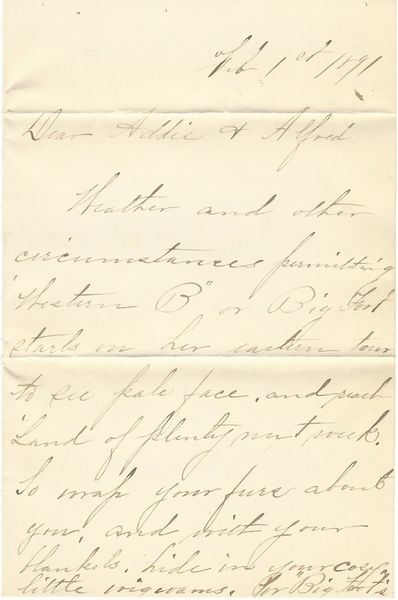 Feb 1st 1891
Dear Addie & Alfred
Weather and other
circumstances permitting
"Western B" or Big Foot
starts on her eastern tour
to see pale face, and reach
"Land of plenty next week.
So wrap your furs about
you, and with your
blankets, hide in your cosy
little wigwams. For "Big Foot's